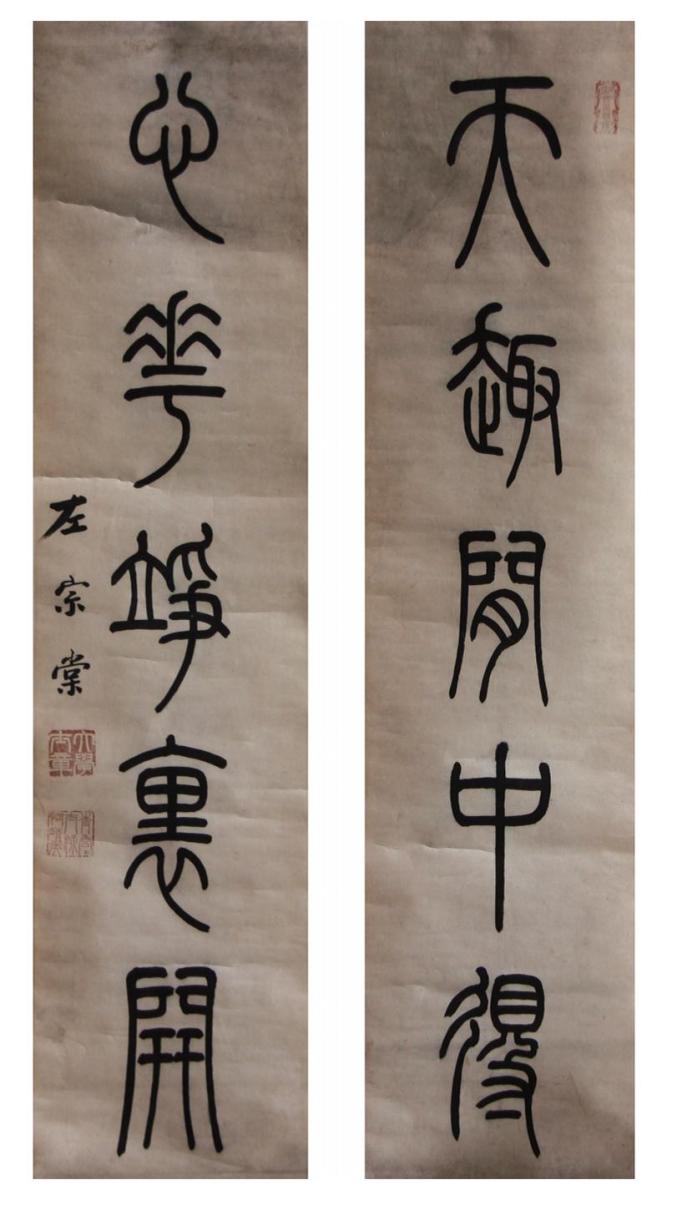 天趣閒中得
心華竫裏開
左宗棠